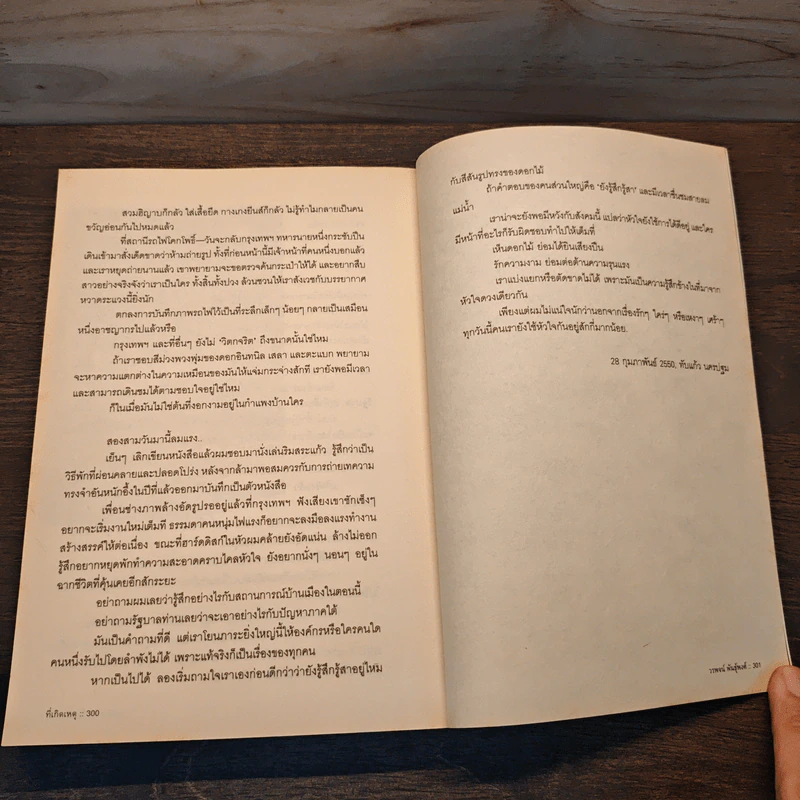 สวมฮิญาบก็กลัว ใส่เสื้อยืด กางเกงยีนส์ก็กลัว ไม่รู้ทำไมกลายเป็นคน
ขวัญอ่อนกันไปหมดแล้ว
ที่สถานีรถไฟโคกโพธิ์—วันจะกลับกรุงเทพฯ ทหารนายหนึ่งกระชับปืน
เดินเข้ามาสั่งเด็ดขาดว่าห้ามถ่ายรูป ทั้งที่ก่อนหน้านี้มีเจ้าหน้าที่คนหนึ่งบอกแล้ว
และเราหยุดถ่ายนานแล้ว เขาพยายามจะขอตรวจค้นกระเป๋าให้ได้ และอยากสืบ
สาวอย่างจริงจังว่าเราเป็นใคร ทั้งสิ้นทั้งปวง ล้วนชวนให้เราสังเวชกับบรรยากาศ
หวาดระแวงนี้ยิ่งนัก
ตกลงการบันทึกภาพรถไฟไว้เป็นที่ระลึกเล็กๆ น้อยๆ กลายเป็นเสมือน
หนึ่งอาชญากรไปแล้วหรือ
กรุงเทพฯ และที่อื่นๆ ยังไม่ 'วิตกจริต' ถึงขนาดนั้นใช่ไหม
ถ้าเราชอบสีม่วงพวงพุ่มของดอกอินทนิล เสลา และตะแบก พยายาม
จะหาความแตกต่างในความเหมือนของมันให้แจ่มกระจ่างสักที เรายังพอมีเวลา
และสามารถเดินชมได้ตามชอบใจอยู่ใช่ไหม
ก็ในเมื่อมันไม่ใช่ต้นที่งอกงามอยู่ในกำแพงบ้านใคร
สองสามวันมานี้ลมแรง..
เย็นๆ เลิกเขียนหนังสือแล้วผมชอบมานั่งเล่นริมสระแก้ว รู้สึกว่าเป็น
วิธีพักที่ผ่อนคลายและปลอดโปร่ง หลังจากล้ามาพอสมควรกับการถ่ายเทความ
ทรงจำอันหนักอึ้งในปีที่แล้วออกมาบันทึกเป็นตัวหนังสือ
เพื่อนช่างภาพล้างอัดรูปรออยู่แล้วที่กรุงเทพฯ ฟังเสียงเขาชักเซ็งๆ
อยากจะเริ่มงานใหม่เต็มที ธรรมดาคนหนุ่มไฟแรงก็อยากจะลงมือลงแรงทำงาน
สร้างสรรค์ให้ต่อเนื่อง ขณะที่ฮาร์ดดิสก์ในหัวผมคล้ายยังอัดแน่น ล้างไม่ออก
รู้สึกอยากหยุดพักทำความสะอาดคราบไคลหัวใจ ยังอยากนั่งๆ นอนๆ อยู่ใน
ฉากชีวิตที่คุ้นเคยอีกสักระยะ
อย่าถามผมเลยว่ารู้สึกอย่างไรกับสถานการณ์บ้านเมืองในตอนนี้
อย่าถามรัฐบาลท่านเลยว่าจะเอาอย่างไรกับปัญหาภาคใต้
มันเป็นคำถามที่ดี แต่เราโยนภาระยิ่งใหญ่นี้ให้องค์กรหรือใครคนใด
คนหนึ่งรับไปโดยลำพังไม่ได้ เพราะแท้จริงก็เป็นเรื่องของทุกคน
หากเป็นไปได้ ลองเริ่มถามใจเราเองก่อนดีกว่าว่ายังรู้สึกรู้สาอยู่ไหม
ที่เกิดเหตุ :: 300
กับสีสันรูปทรงของดอกไม้
ถ้าคำตอบของคนส่วนใหญ่คือ 'ยังรู้สึกรู้สา' และมีเวลาชื่นชมสายลม
แม่น้ำ
เราน่าจะยังพอมีหวังกับสังคมนี้ แปลว่าหัวใจยังใช้การได้ดีอยู่ และใคร
มีหน้าที่อะไรก็รับผิดชอบทำไปให้เต็มที่
เห็นดอกไม้ ย่อมได้ยินเสียงปืน
รักความงาม ย่อมต่อต้านความรุนแรง
เราแบ่งแยกหรือตัดขาดไม่ได้ เพราะมันเป็นความรู้สึกข้างในที่มาจาก
หัวใจดวงเดียวกัน
เพียงแต่ผมไม่แน่ใจนักว่านอกจากเรื่องรักๆ ใคร่ๆ หรือเหงาๆ เศร้าๆ
ทุกวันนี้คนเรายังใช้หัวใจกันอยู่สักกี่มากน้อย.
28 กุมภาพันธ์ 2550, ทับแก้ว นครปฐม
วรพจน์ พันธุ์พงศ์ :: 301